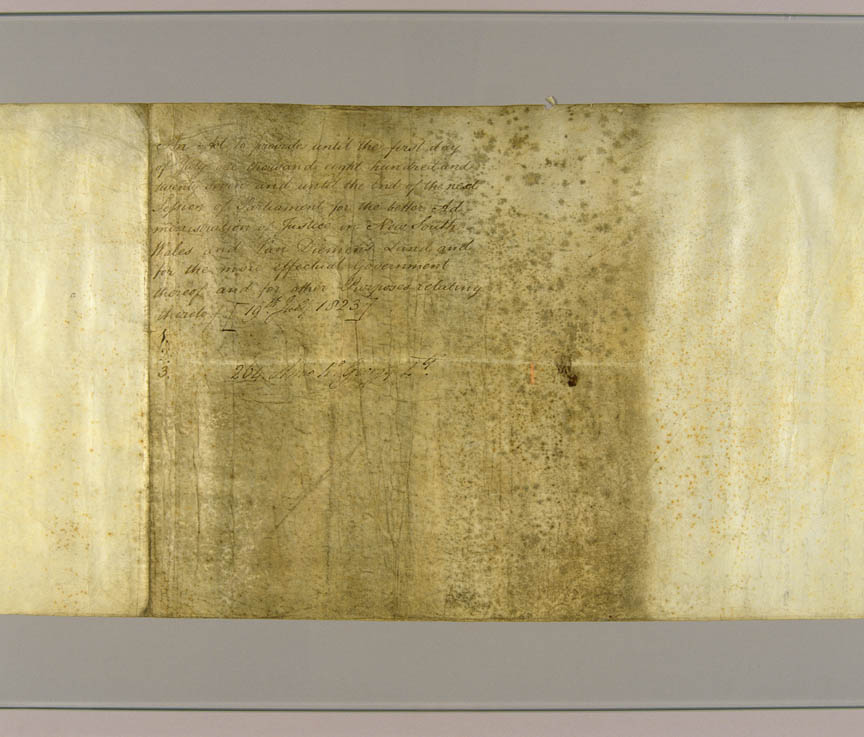 An Act to provide until the first day
of July one thousand eight hundred and
twenty seven and until the end of the next
Session of Parliament for the better Ad
ministration of Justice in New South
Wales and Van Diemen's Land and
for the more effectual Government
thereof and for other Purposes relating
thereto [19th July 1823]
3.